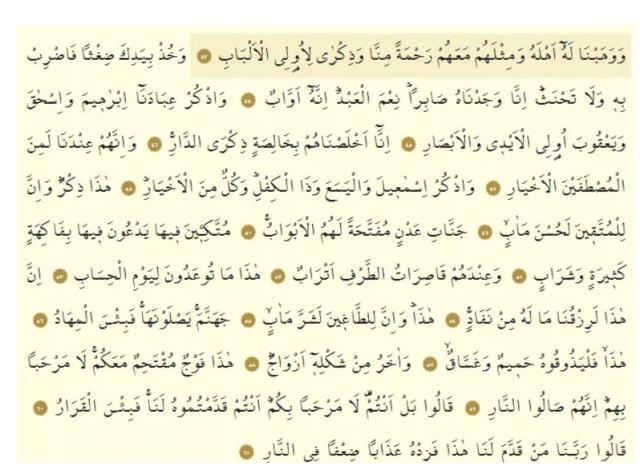 وَوَهَبْنَا لَهُٓ اَهْلَهُ وَمِثْلَهُمْ مَعَهُمْ رَحْمَةً مِنَّا وَذِكْرٰى لِاُو۬لِي الْاَلْبَابِ ﴿٤٣﴾ وَخُذْ بِيَدِكَ ضِغْثًا فَاضْرِبْ
بِه۪ وَلَا تَحْنَثْۜ اِنَّا وَجَدْنَاهُ صَابِرًاۜ نِعْمَ الْعَبْدُۜ اِنَّهُٓ اَوَّابٌ ﴿٤٤﴾ وَاذْكُرْ عِبَادَنَٓا اِبْرٰه۪يمَ وَاِسْحٰقَ
وَيَعْقُوبَ اُو۬لِي الْاَيْد۪ي وَالْاَبْصَارِ ﴿٤٥﴾ اِنَّٓا اَخْلَصْنَاهُمْ بِخَالِصَةٍ ذِكْرَى الدَّارِۚ ﴿٤٦﴾ وَاِنَّهُمْ عِنْدَنَا لَمِنَ
الْمُصْطَفَيْنَ الْاَخْيَارِ ﴿٤٧﴾ وَاذْكُرْ اِسْمٰع۪يلَ وَالْيَسَعَ وَذَا الْكِفْلِۜ وَكُلٌّ مِنَ الْاَخْيَارِۜ ﴿٤٨﴾ هٰذَا ذِكْرٌۜ وَاِنَّ
لِلْمُتَّق۪ينَ لَحُسْنَ مَاٰبٍۙ ﴿٤٩﴾ جَنَّاتِ عَدْنٍ مُفَتَّحَةً لَهُمُ الْاَبْوَابُۚ ﴿٥٠﴾ مُتَّكِـ۪ٔينَ ف۪يهَا يَدْعُونَ ف۪يهَا بِفَاكِهَةٍ
كَث۪يرَةٍ وَشَرَابٍ ﴿٥١﴾ وَعِنْدَهُمْ قَاصِرَاتُ الطَّرْفِ اَتْرَابٌ ﴿٥٢﴾ هٰذَا مَا تُوعَدُونَ لِيَوْمِ الْحِسَابِ ﴿٥٣﴾ اِنَّ
هٰذَا لَرِزْقُنَا مَا لَهُ مِنْ نَفَادٍۚ ﴿٥٤﴾ هٰذَاۜ وَاِنَّ لِلطَّاغ۪ينَ لَشَرَّ مَاٰبٍۙ ﴿٥٥﴾ جَهَنَّمَۚ يَصْلَوْنَهَاۚ فَبِئْسَ الْمِهَادُ ﴿٥٦﴾
هٰذَاۙ فَلْيَذُوقُوهُ حَم۪يمٌ وَغَسَّاقٌۙ ﴿٥٧﴾ وَاٰخَرُ مِنْ شَكْلِه۪ٓ اَزْوَاجٌۜ ﴿٥٨﴾ هٰذَا فَوْجٌ مُقْتَحِمٌ مَعَكُمْۚ لَا مَرْحَبًا
بِهِمْۜ اِنَّهُمْ صَالُوا النَّارِ ﴿٥٩﴾ قَالُوا بَلْ اَنْتُمْ۠ لَا مَرْحَبًا بِكُمْۜ اَنْتُمْ قَدَّمْتُمُوهُ لَنَاۚ فَبِئْسَ الْقَرَارُ ﴿٦٠﴾
قَالُوا رَبَّنَا مَنْ قَدَّمَ لَنَا هٰذَا فَزِدْهُ عَذَابًا ضِعْفًا فِي النَّارِ ﴿٦١﴾